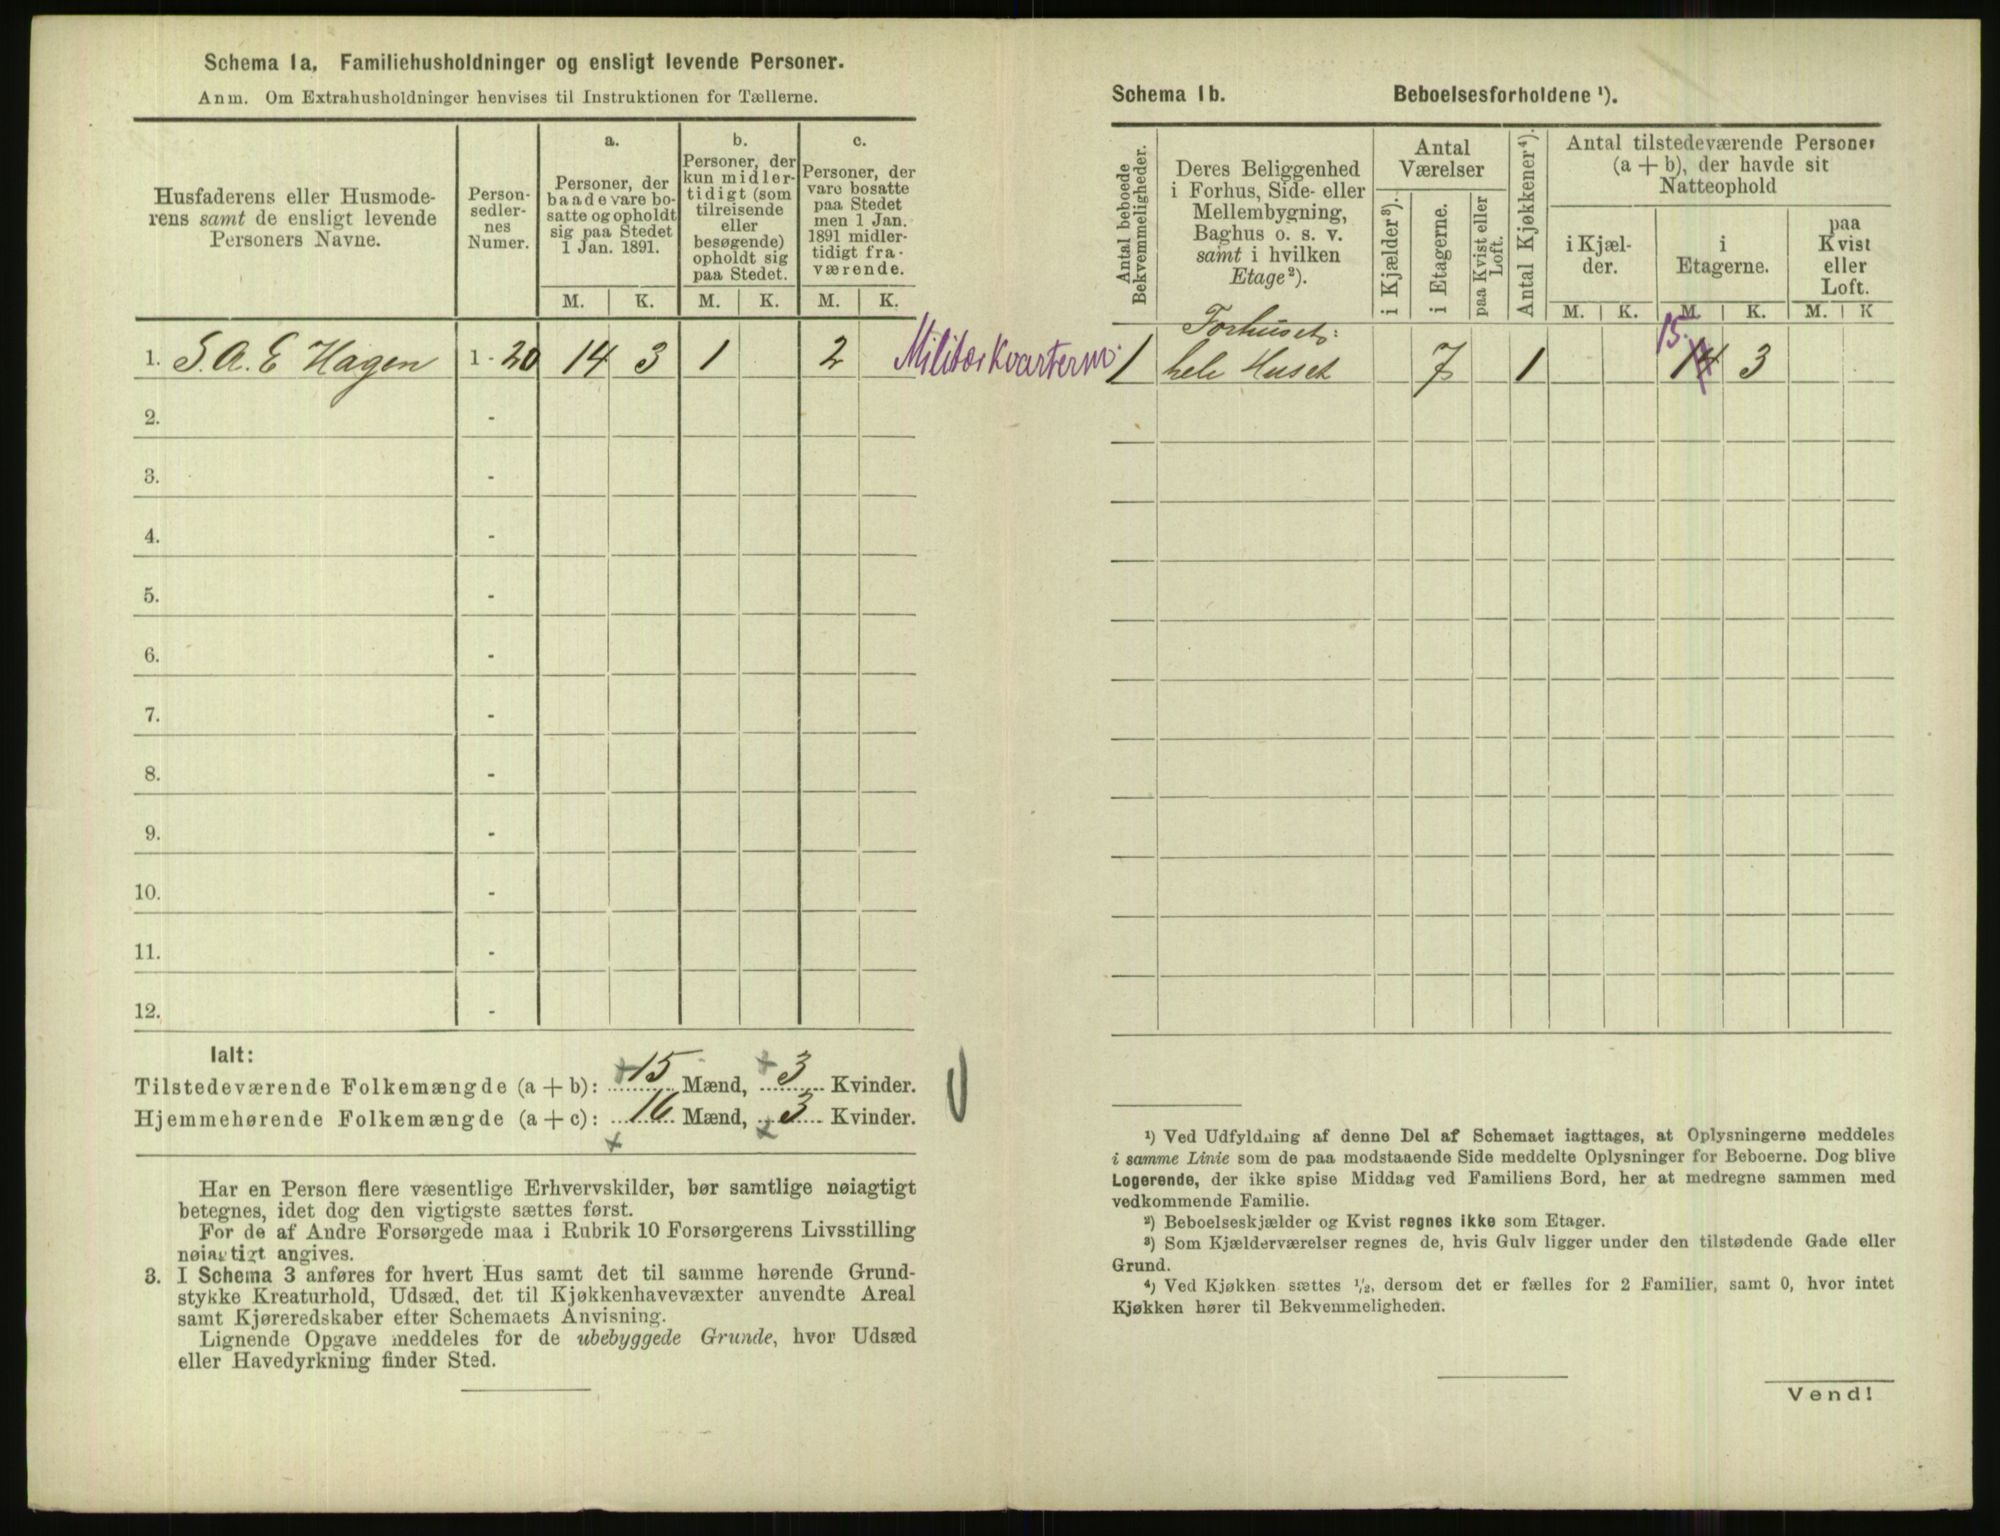 Schema 1a. Familiehusholdninger og ensligt levende Personer.
Anm. Om Extrahusholdninger henvises til Instruktionen for Tællerne.
Husfaderens eller Husmode-
rens samt de ensligt levende
Personers Navne.
Person-
sedler-
nes
Numer.
a.
Personer, der
baade vare bo-
satte og opholdt
sig paa Stedet
1 Jan. 1891.
b.
Personer, der
kun midler-
tidigt (som
tilreisende
eller
besøgende)
opholdt sig
paa Stedet.
c.
Personer, der
vare bosatte
paa Stedet
men 1 Jan.
1891 midler-
tidigt fra-
værende.
M. K. M. K. M. K.
1. S. A. E Hagen 1 - 20 14 3 1 2 Militærkvarterm.
2. -
3. -
4. -
5. -
6. -
7. -
8. -
9. -
10. -
11. -
12. -
Ialt:
Tilstedeværende Folkemængde (a + b): 15 Mænd, 3 Kvinder.
Hjemmehørende Folkemængde (a + c): 16 Mænd, 3 Kvinder.
Har en Person flere væsentlige Erhvervskilder, bør samtlige nøiagtigt
betegnes, idet dog den vigtigste sættes først.
For de af Andre Forsørgede maa i Rubrik 10 Forsørgerens Livsstilling
nøiagtigt angives.
3. I Schema 3 anføres for hvert Hus samt det til samme hørende Grund-
stykke Kreaturhold, Udsæd, det til Kjøkkenhavevæxter anvendte Areal
samt Kjøreredskaber efter Schemaets Anvisning.
Lignende Opgave meddeles for de ubebyggede Grunde, hvor Udsæd
eller Havedyrkning finder Sted.
Schema 1b. Beboelsesforholdene ¹).
Antal beboede
Bekvemmeligheder.
Deres Beliggenhed
i Forhus, Side- eller
Mellembygning,
Baghus o. s. v.
samt i hvilken
Etage²).
Antal
Værelser
i Kjælder³).
i Etagerne.
paa Kvist eller
Loft.
Antal Kjøkkener⁴).
Antal tilstedeværende Personer
(a + b), der havde sit
Natteophold
i Kjæl-
der.
i
Etagerne.
paa
Kvist
eller
Loft.
M. K. M. K. M. K
Forhuset: 15.
1 hele Huset 7 1 14 3
¹) Ved Udfyldning af denne Del af Schemaet iagttages, at Oplysningerne meddeles
i samme Linie som de paa modstaaende Side meddelte Oplysninger for Beboerne. Dog blive
Logerende, der ikke spise Middag ved Familiens Bord, her at medregne sammen med
vedkommende Familie.
²) Beboelseskjælder og Kvist regnes ikke som Etager.
³) Som Kjælderværelser regnes de, hvis Gulv ligger under den tilstødende Gade eller
Grund.
⁴) Ved Kjøkken sættes ¹/₂, dersom det er fælles for 2 Familier, samt 0, hvor intet
Kjøkken hører til Bekvemmeligheden.
Vend!